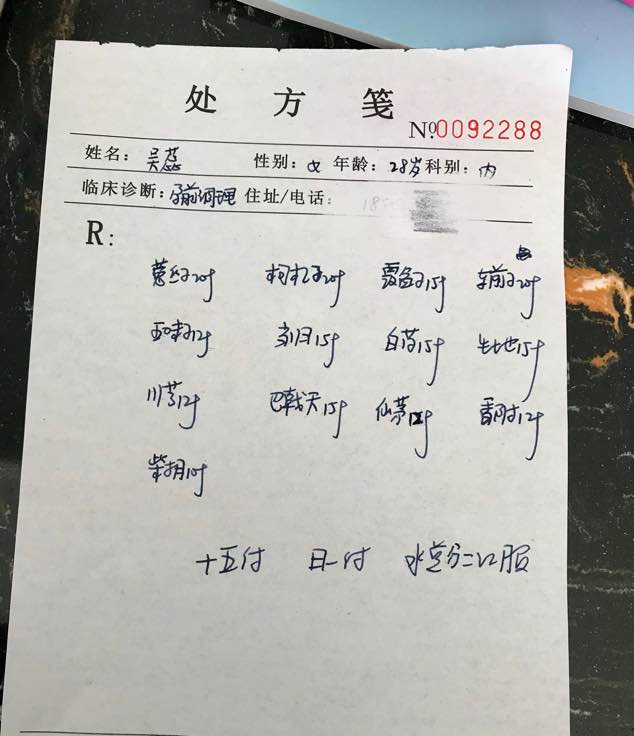 处方笺
№0092288
姓名：吴蕊 性别：女 年龄：28岁 科别：内
临床诊断：孕前调理 住址/电话：
R：
菟丝子20g 枸杞子20g 覆盆子15g 车前子20g
五味子12g 当归15g 白芍15g 生地15g
川芎12g 巴戟天15g 仙茅12g 香附12g
柴胡10g
十五付 日一付 水煎分二次口服